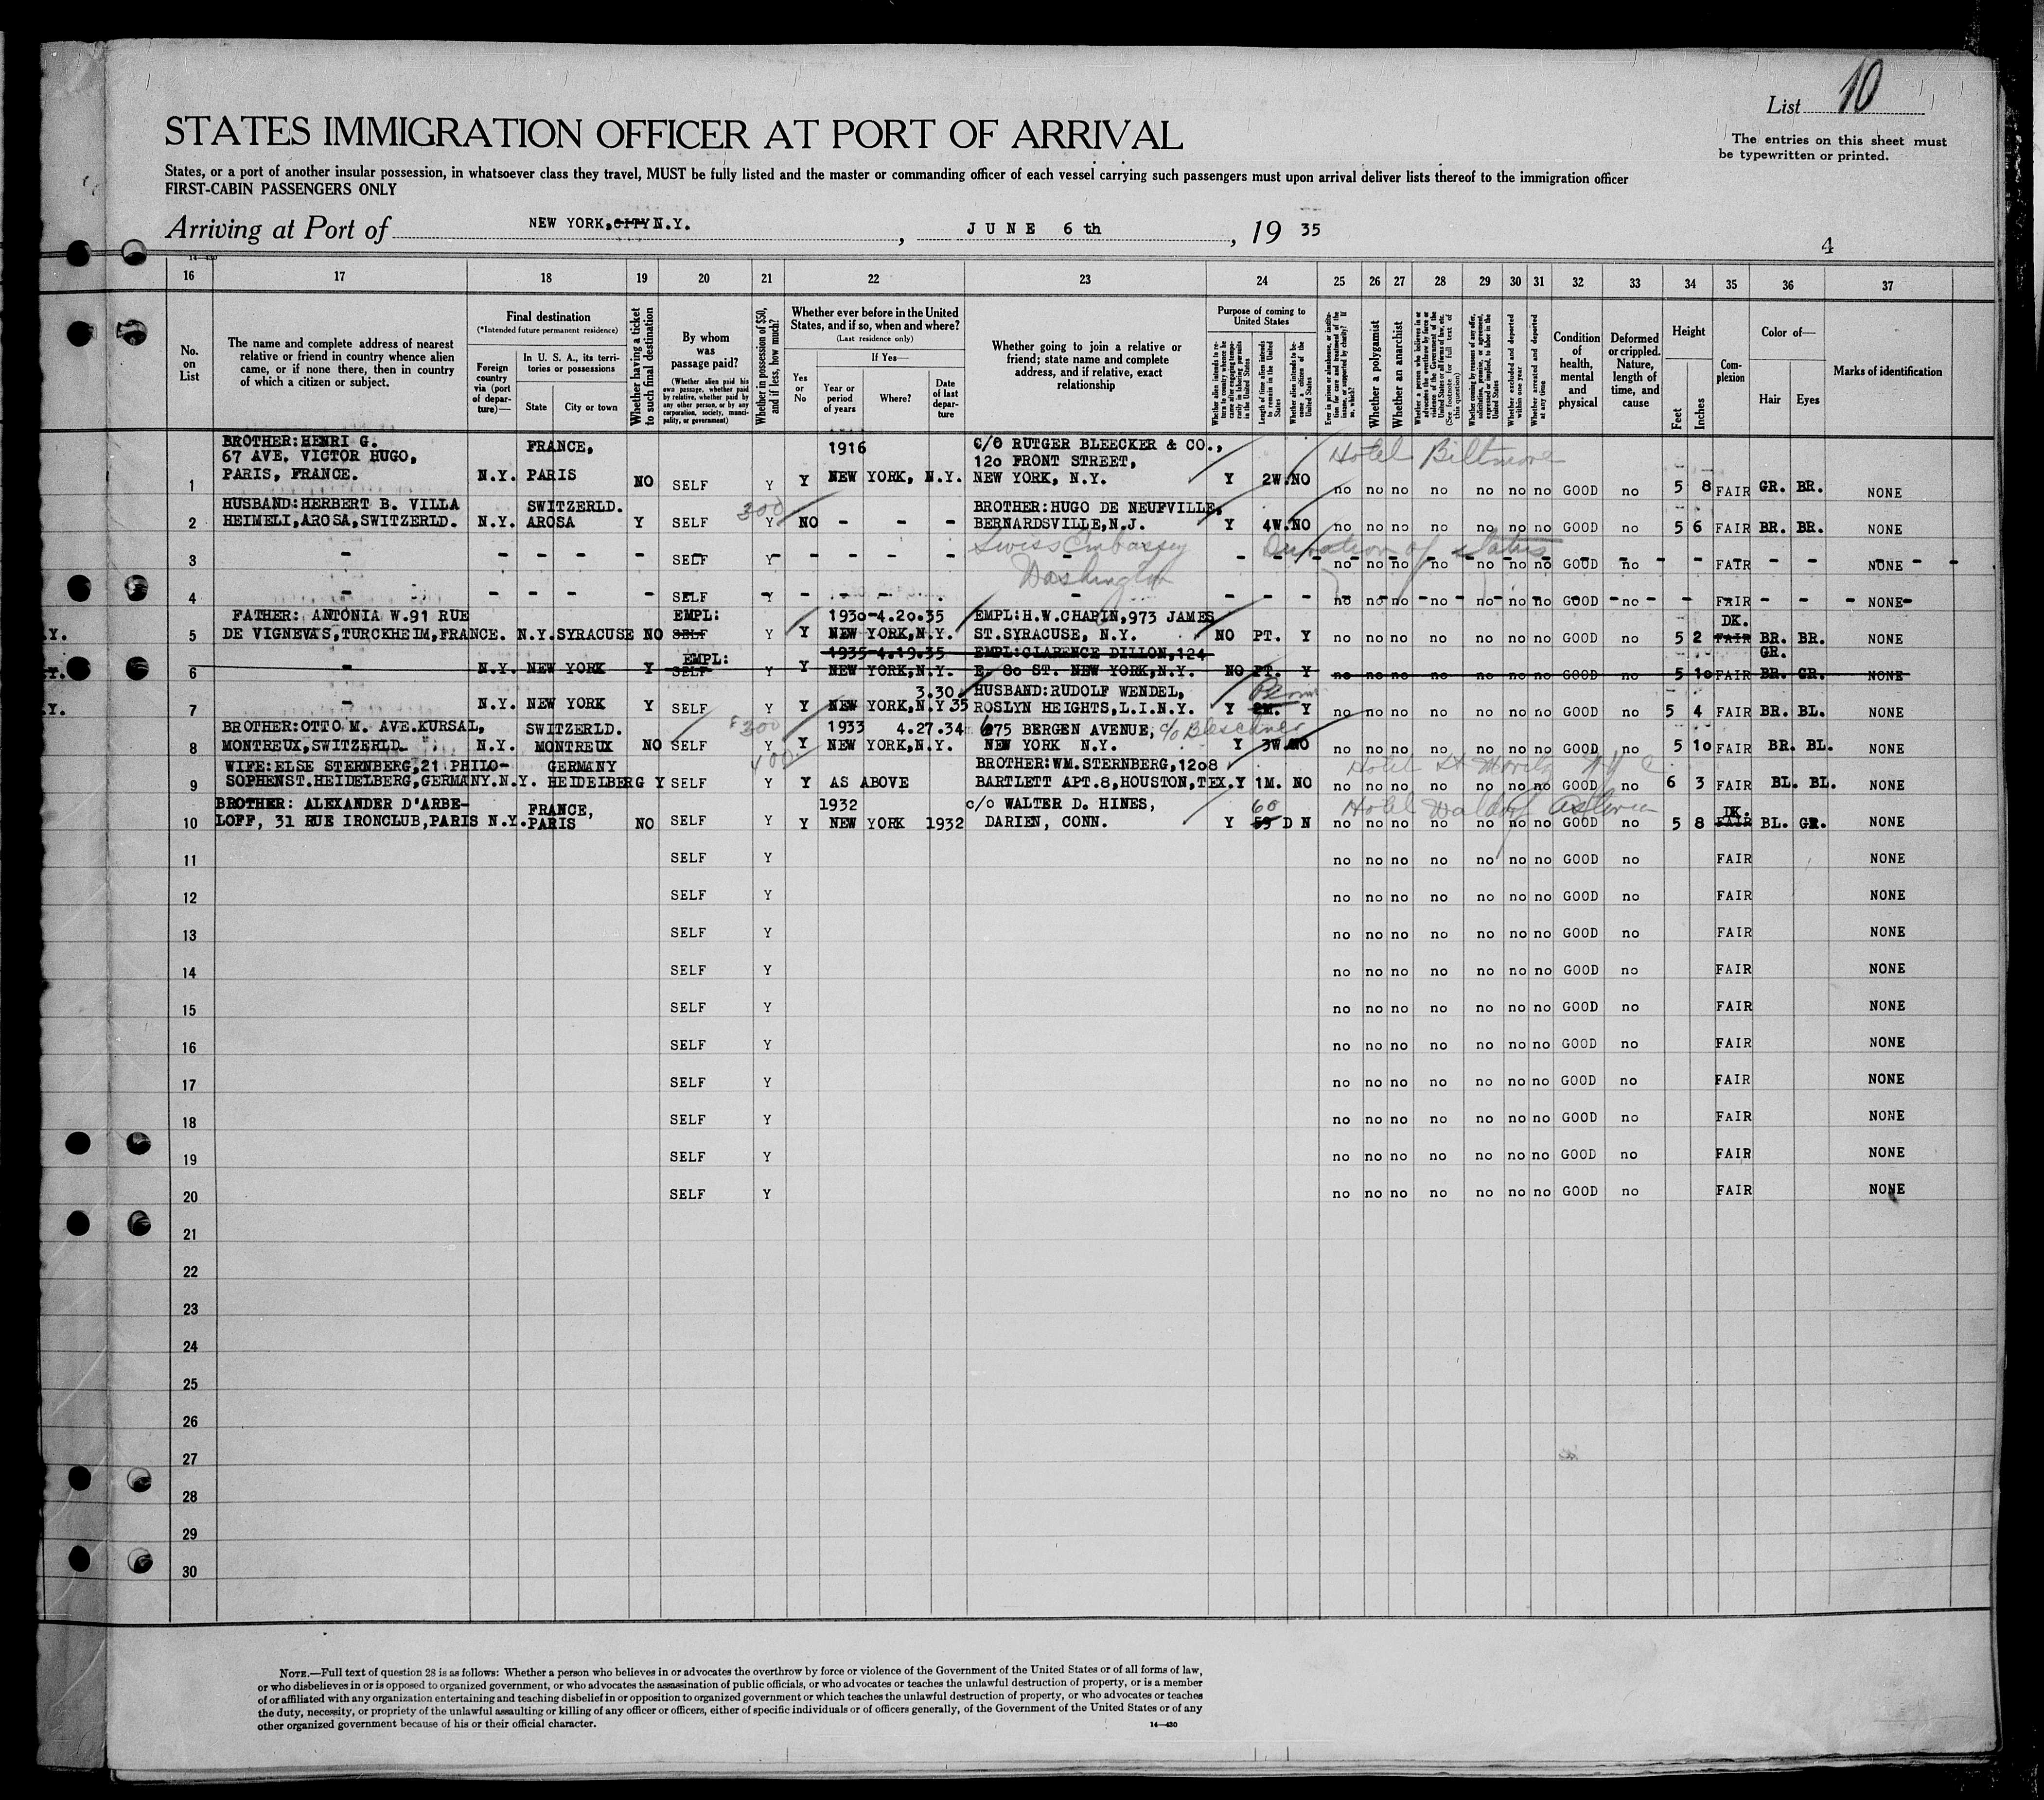 List 10
STATES IMMIGRATION OFFICER AT PORT OF ARRIVAL
The entries on this sheet must
be typewritten or printed.
States, or a port of another insular possession, in whatsoever class they travel, MUST be fully listed and the master or commanding officer of each vessel carrying such passengers must upon arrival deliver lists thereof to the immigration officer
FIRST-CABIN PASSENGERS ONLY
Arriving at Port of NEW YORK, CITY N.Y. , JUNE 6th , 19 35
4
16 17 18 19 20 21 22 23 24 25 26 27 28 29 30 31 32 33 34 35 36 37
No. on List
The name and complete address of nearest
relative or friend in country whence alien
came, or if none there, then in country
of which a citizen or subject.
Final destination
(*Intended future permanent residence)
Foreign country via (port of departure)—
In U. S. A., its territories or possessions
State City or town
Whether having a ticket to such final destination
By whom was passage paid?
(Whether alien paid his own passage, whether paid by relative, whether paid by any other person, or by any corporation, society, municipality, or government)
Whether in possession of $50, and if less, how much?
Whether ever before in the United
States, and if so, when and where?
(Last residence only)
Yes or No
If Yes—
Year or period of years
Where?
Date of last departure
Whether going to join a relative or
friend; state name and complete
address, and if relative, exact
relationship
Purpose of coming to United States
Length of time alien intends to remain in the United States
Whether alien intends to become a citizen of the United States
Whether a polygamist
Whether an anarchist
Whether excluded and deported within one year
Whether arrested and deported at any time
Condition of health, mental and physical
Deformed or crippled. Nature, length of time, and cause
Height
Feet Inches
Complexion
Color of—
Hair Eyes
Marks of identification
BROTHER:HENRI G. FRANCE, 1916 C/O RUTGER BLEECKER & CO.,
67 AVE. VICTOR HUGO, 120 FRONT STREET, Hotel Biltmore
1 PARIS, FRANCE. N.Y. PARIS NO SELF Y Y NEW YORK, N.Y. NEW YORK, N.Y. Y 2W. NO no no no no no no no GOOD no 5 8 FAIR GR. BR. NONE
HUSBAND:HERBERT B. VILLA SWITZERLD. 300 BROTHER:HUGO DE NEUFVILLE,
2 HEIMELI,AROSA,SWITZERLD. N.Y. AROSA Y SELF Y NO - - - BERNARDSVILLE,N.J. Y 4W. NO no no no no no no no GOOD no 5 6 FAIR BR. BR. NONE
Swiss Embassy Duration of status
3 - - - - - SELF Y - - - - - - - no no no no no no no GOOD no - - FAIR - - NONE
Washington
4 - - - - - SELF Y - - - - - - - no no no no no no no GOOD no - - FAIR - - NONE
FATHER: ANTONIA W.91 RUE EMPL: 1930-4.20.35 EMPL:H.W.CHAPIN,973 JAMES DK.
5 DE VIGNEVAS,TURCKHEIM,FRANCE. N.Y. SYRACUSE NO SELF Y Y NEW YORK,N.Y. ST.SYRACUSE, N.Y. NO PT. Y no no no no no no no GOOD no 5 2 FAIR BR. BR. NONE
EMPL: 1935-4.19.35 EMPL:CLARENCE DILLON,124 GR.
6 - N.Y. NEW YORK Y SELF Y NEW YORK,N.Y. E. 80 ST. NEW YORK,N.Y. NO PT. Y no no no no no no no GOOD no 5 10 FAIR BR. GR. NONE
3.30. HUSBAND:RUDOLF WENDEL,
7 - N.Y. NEW YORK Y SELF Y Y NEW YORK,N.Y 35 ROSLYN HEIGHTS,L.I.N.Y. Y 2M. Y no no no no no no no GOOD no 5 4 FAIR BR. BL. NONE
BROTHER:OTTO M. AVE.KURSAL, SWITZERLD. $300 1933 4.27.34 675 BERGEN AVENUE,
8 MONTREUX,SWITZERLD. N.Y. MONTREUX NO SELF Y Y NEW YORK,N.Y. NEW YORK N.Y. Y 3W. NO no no no no no no no GOOD no 5 10 FAIR BR. BL. NONE
WIFE:ELSE STERNBERG,21 PHILO- GERMANY 400 BROTHER:WM.STERNBERG,1208 Hotel St Moritz N Y C
9 SOPHENST.HEIDELBERG,GERMANY. N.Y. HEIDELBERG Y SELF Y Y AS ABOVE BARTLETT APT.8,HOUSTON,TEX. Y 1M. NO no no no no no no no GOOD no 6 3 FAIR BL. BL. NONE
BROTHER: ALEXANDER D'ARBE- FRANCE, 1932 c/o WALTER D. HINES, 60 Hotel Waldorf Astoria DK.
10 LOFF, 31 RUE IRONCLUB,PARIS N.Y. PARIS NO SELF Y Y NEW YORK 1932 DARIEN, CONN. Y 59 D N no no no no no no no GOOD no 5 8 FAIR BL. GR. NONE
11 SELF Y no no no no no no no GOOD no FAIR NONE
12 SELF Y no no no no no no no GOOD no FAIR NONE
13 SELF Y no no no no no no no GOOD no FAIR NONE
14 SELF Y no no no no no no no GOOD no FAIR NONE
15 SELF Y no no no no no no no GOOD no FAIR NONE
16 SELF Y no no no no no no no GOOD no FAIR NONE
17 SELF Y no no no no no no no GOOD no FAIR NONE
18 SELF Y no no no no no no no GOOD no FAIR NONE
19 SELF Y no no no no no no no GOOD no FAIR NONE
20 SELF Y no no no no no no no GOOD no FAIR NONE
21
22
23
24
25
26
27
28
29
30
NOTE.—Full text of question 28 is as follows: Whether a person who believes in or advocates the overthrow by force or violence of the Government of the United States or of all forms of law,
or who disbelieves in or is opposed to organized government, or who advocates the assassination of public officials, or who advocates or teaches the unlawful destruction of property, or is a member
of or affiliated with any organization entertaining and teaching disbelief in or opposition to organized government or which teaches the unlawful destruction of property, or who advocates or teaches
the duty, necessity, or propriety of the unlawful assaulting or killing of any officer or officers, either of specific individuals or of officers generally, of the Government of the United States or of any
other organized government because of his or their official character.
14—430